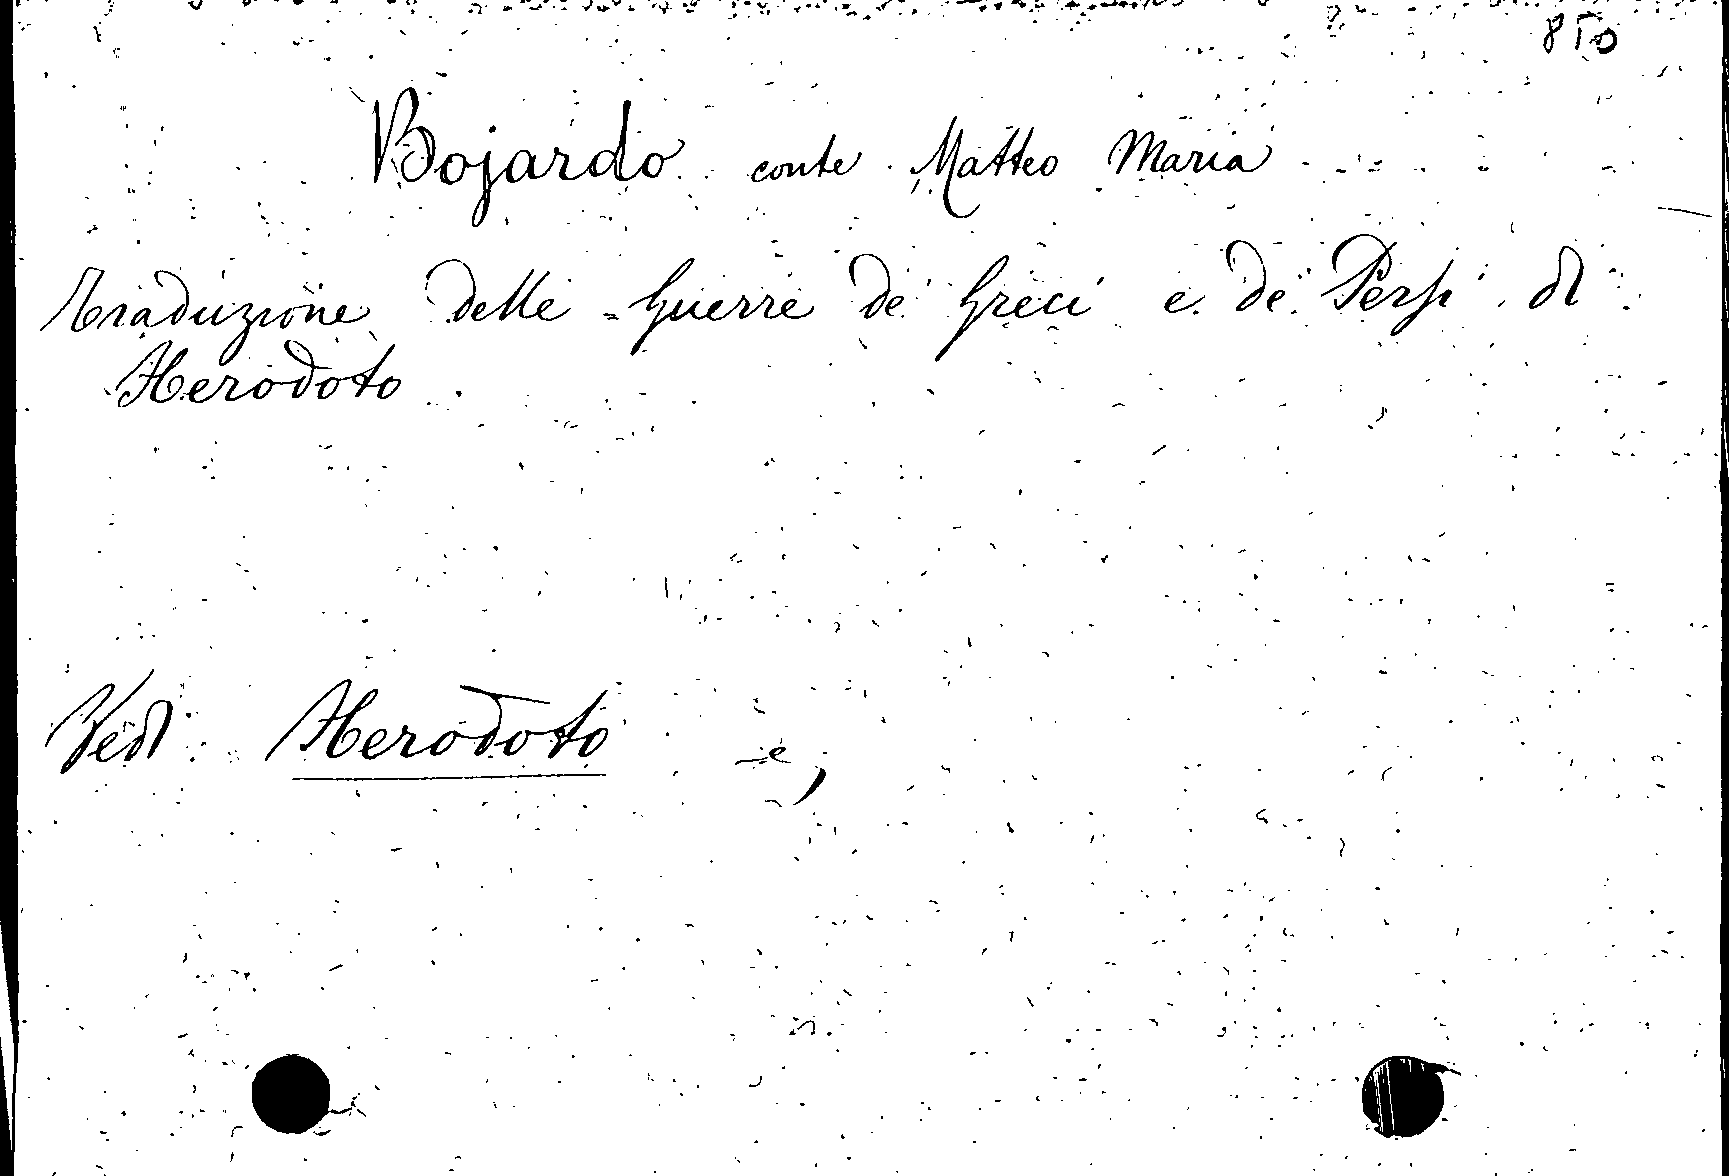 850
Bojardo conte Matteo Maria
Traduzione delle Guerre de' Greci e de' Persi di
Herodoto
Vedi Herodoto